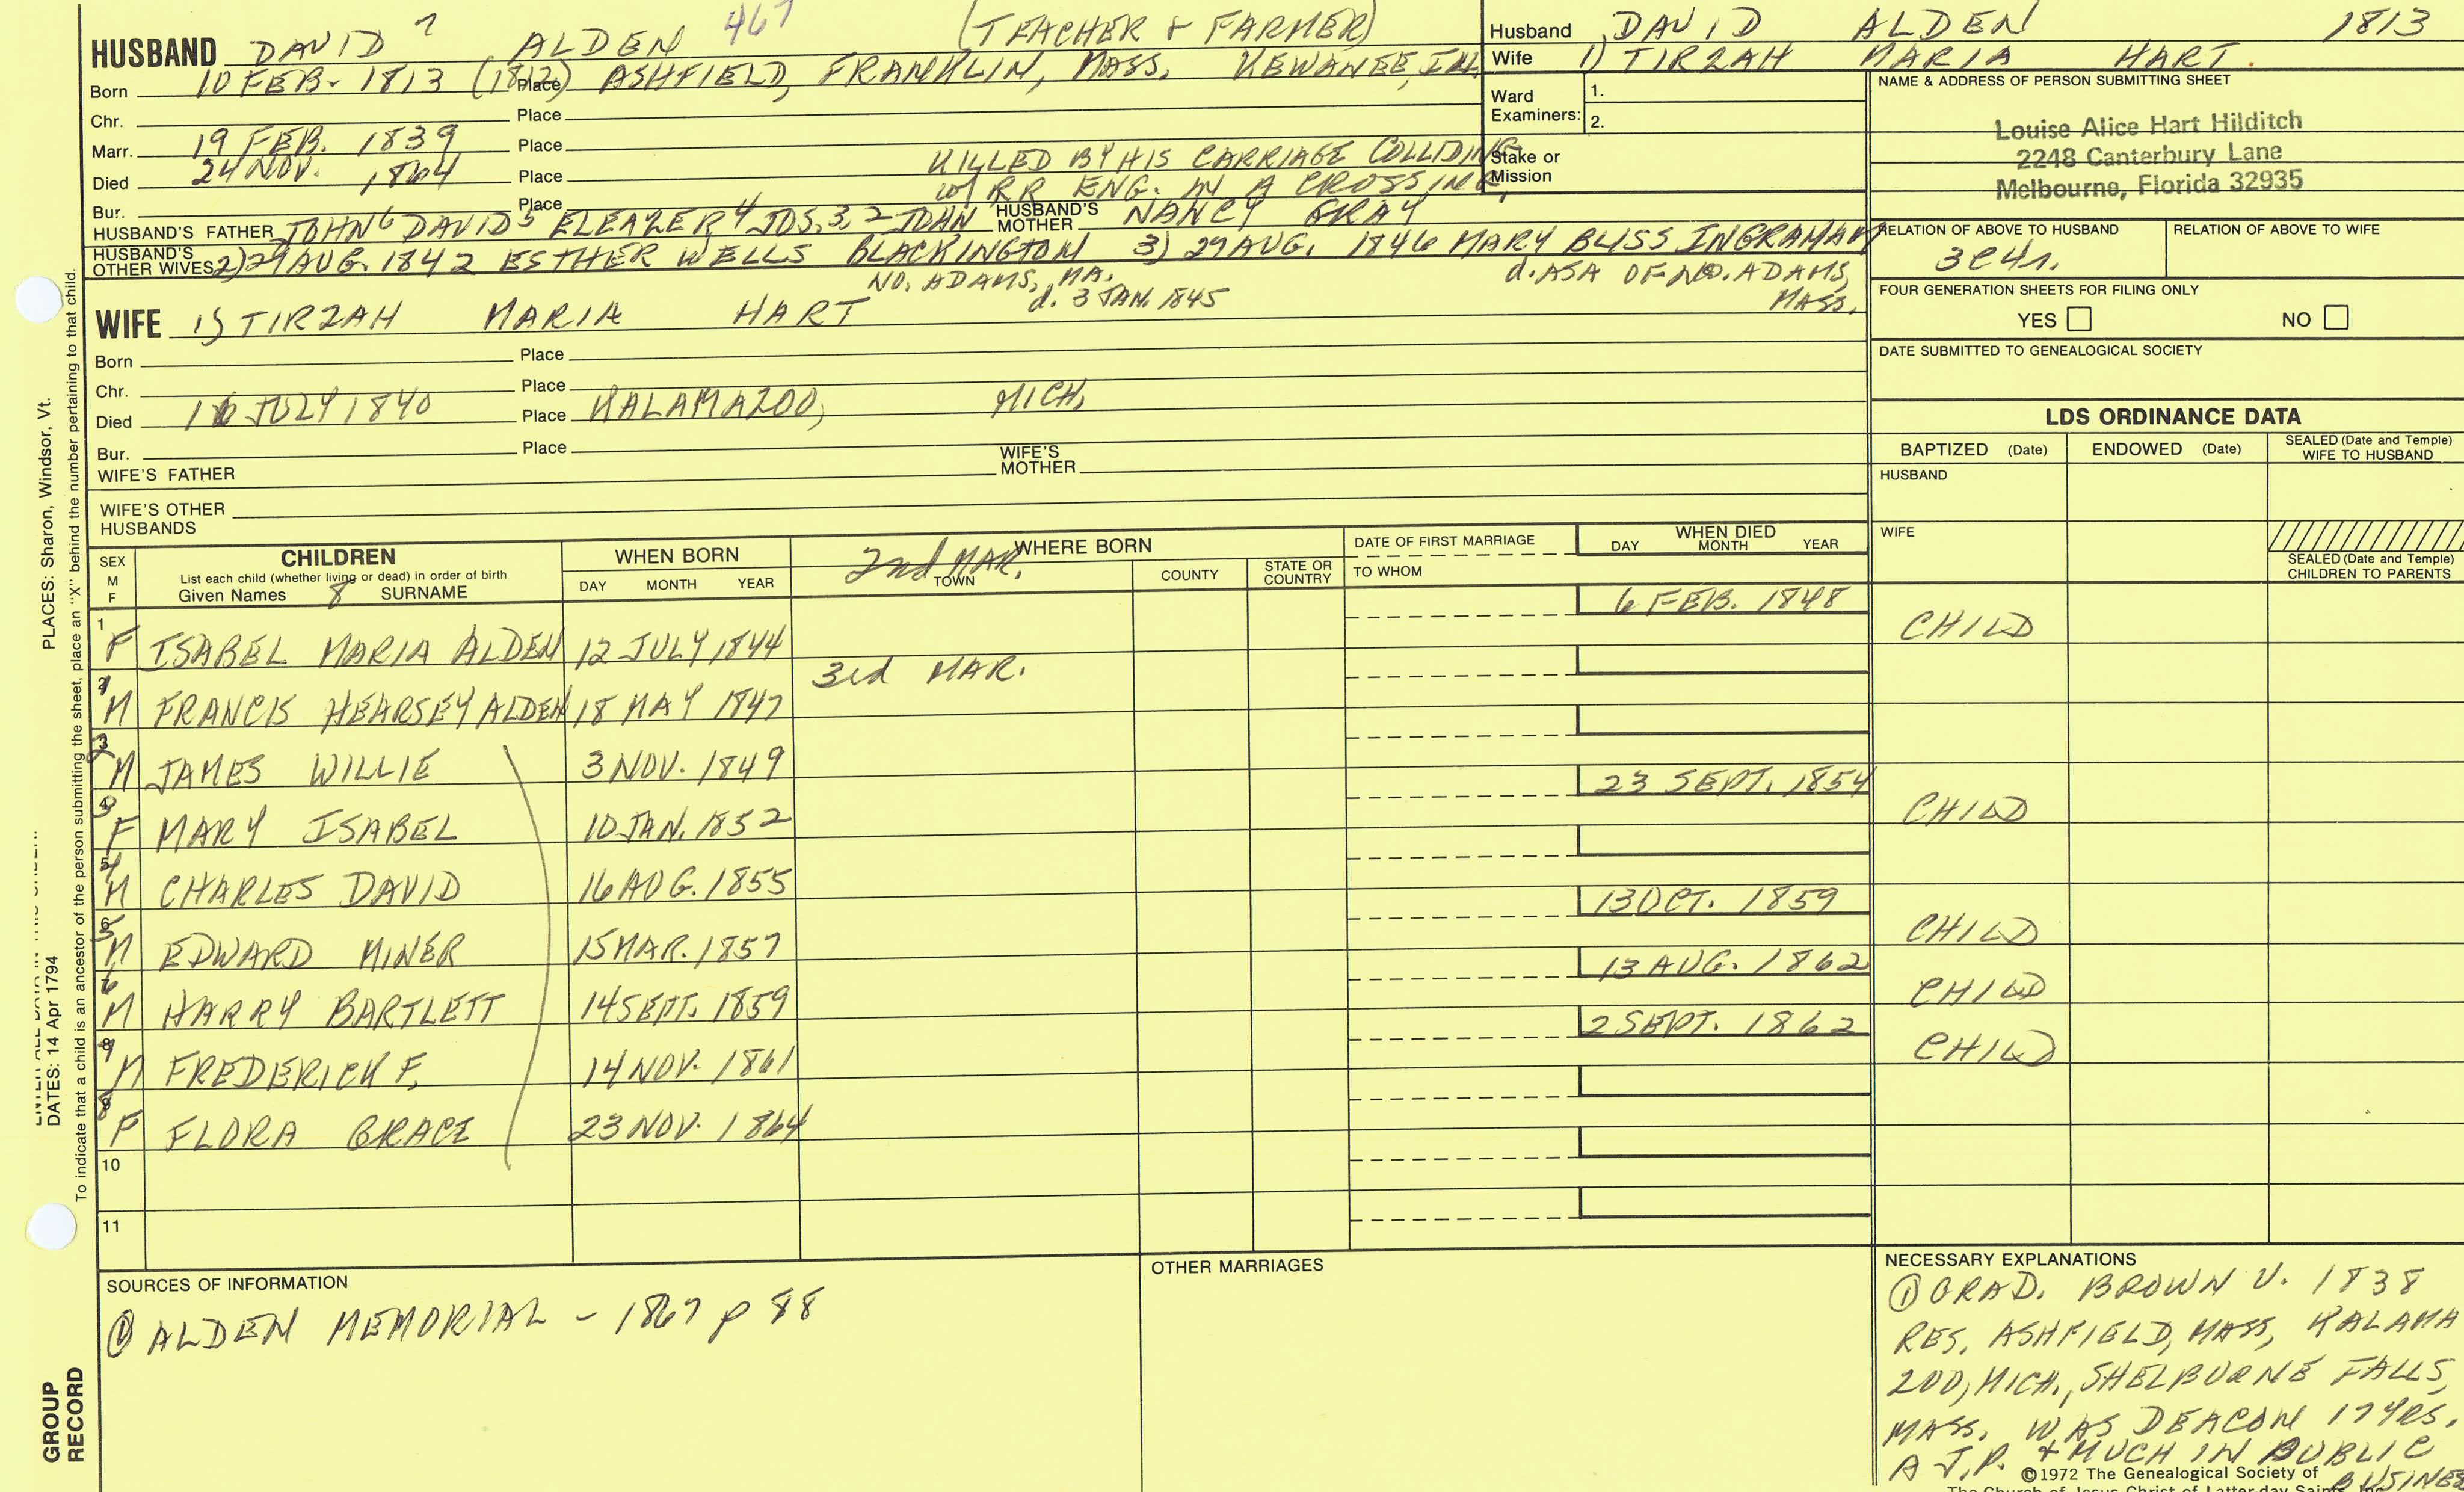 HUSBAND DAVID 7 ALDEN 467 (TEACHER & FARMER)
Born 10 FEB. 1813 (1812) Place ASHFIELD, FRANKLIN, MASS. KEWANEE, ILL.
Chr. Place
Marr. 19 FEB. 1839 Place
Died 24 NOV. 1864 Place KILLED BY HIS CARRIAGE COLLIDING
Bur. Place w/ RR ENG. IN A CROSSING,
HUSBAND'S FATHER JOHN 6 DAVID 5 ELEAZER 4 JOS. 3, 2 JOHN HUSBAND'S MOTHER NANCY GRAY
HUSBAND'S OTHER WIVES 2) 29 AUG. 1842 ESTHER WELLS BLACKINGTON 3) 29 AUG. 1846 MARY BLISS INGRAHAM
NO. ADAMS, MA. d. ASA OF NO. ADAMS,
d. 3 JAN. 1845 MASS.
WIFE 1) TIRZAH MARIA HART
Born Place
Chr. Place
Died 16 JULY 1840 Place KALAMAZOO, MICH.
Bur. Place
WIFE'S FATHER WIFE'S MOTHER
WIFE'S OTHER HUSBANDS
Husband DAVID ALDEN 1813
Wife 1) TIRZAH MARIA HART.
Ward Examiners: 1.
2.
Stake or Mission
NAME & ADDRESS OF PERSON SUBMITTING SHEET
Louise Alice Hart Hilditch
2248 Canterbury Lane
Melbourne, Florida 32935
RELATION OF ABOVE TO HUSBAND RELATION OF ABOVE TO WIFE
3C4r.
FOUR GENERATION SHEETS FOR FILING ONLY
YES NO
DATE SUBMITTED TO GENEALOGICAL SOCIETY
LDS ORDINANCE DATA
BAPTIZED (Date) ENDOWED (Date) SEALED (Date and Temple) WIFE TO HUSBAND
HUSBAND
WIFE
SEALED (Date and Temple) CHILDREN TO PARENTS
SEX M F CHILDREN WHEN BORN WHERE BORN DATE OF FIRST MARRIAGE WHEN DIED
List each child (whether living or dead) in order of birth
Given Names 8 SURNAME DAY MONTH YEAR TOWN COUNTY STATE OR COUNTRY TO WHOM DAY MONTH YEAR
2nd MAR.
1 F ISABEL MARIA ALDEN 12 JULY 1844 6 FEB. 1848 CHILD
3rd MAR.
2 1 M FRANCIS HEARSEY ALDEN 18 MAY 1847
3 2 M JAMES WILLIE 3 NOV. 1849
4 3 F MARY ISABEL 10 JAN. 1852 23 SEPT. 1854 CHILD
5 4 M CHARLES DAVID 16 AUG. 1855
6 5 M EDWARD MINER 15 MAR. 1857 13 OCT. 1859 CHILD
6 M HARRY BARTLETT 14 SEPT. 1859 13 AUG. 1862 CHILD
8 7 M FREDERICK F. 14 NOV. 1861 2 SEPT. 1862 CHILD
9 8 F FLORA GRACE 23 NOV. 1864
10
11
SOURCES OF INFORMATION
① ALDEN MEMORIAL - 1867 p 88
OTHER MARRIAGES
NECESSARY EXPLANATIONS
① GRAD. BROWN U. 1838
RES. ASHFIELD, MASS, KALAMA
ZOO, MICH., SHELBURNE FALLS,
MASS. WAS DEACON 17 YRS.
A J.P. + MUCH IN PUBLIC
BUSINES
©1972 The Genealogical Society of
The Church of Jesus Christ of Latter-day Saints, Inc.
PLACES: Sharon, Windsor, Vt.
DATES: 14 Apr 1794
To indicate that a child is an ancestor of the person submitting the sheet, place an "X" behind the number pertaining to that child.
GROUP
RECORD